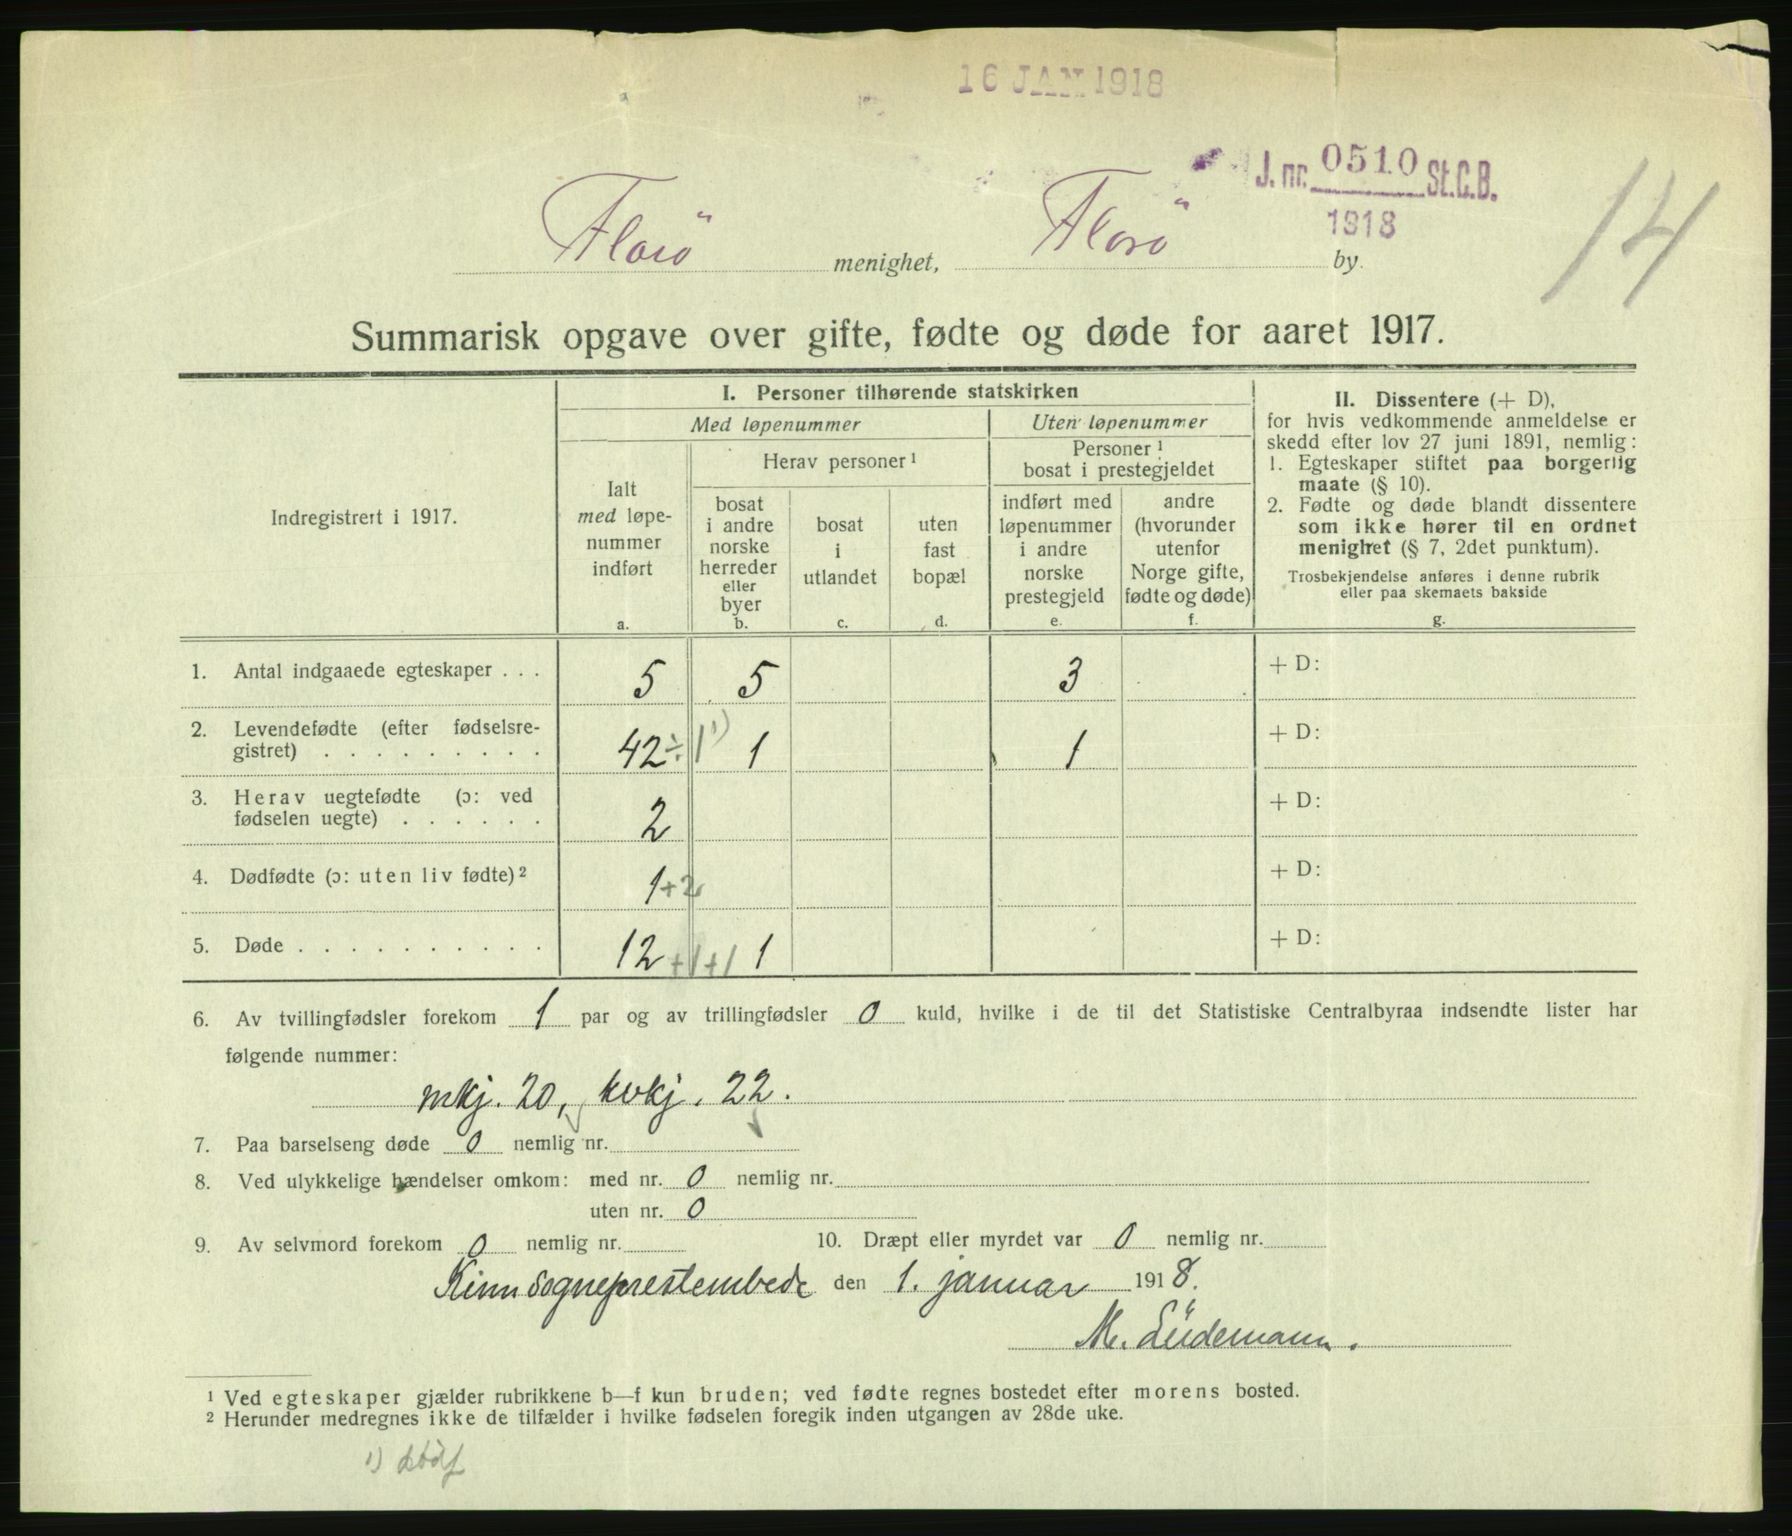 16 JAN 1918
J. nr. 0510 St.C.B.
1918
14
Florö menighet, Florö by.
Summarisk opgave over gifte, fødte og døde for aaret 1917.
Indregistrert i 1917.
I. Personer tilhørende statskirken
Med løpenummer
Uten løpenummer
Ialt
med løpe-
nummer
indført
a.
Herav personer¹
bosat
i andre
norske
herreder
eller
byer
b.
bosat
i
utlandet
c.
uten
fast
bopæl
d.
Personer¹
bosat i prestegjeldet
indført med
løpenummer
i andre
norske
prestegjeld
e.
andre
(hvorunder
utenfor
Norge gifte,
fødte og døde)
f.
II. Dissentere (+ D),
for hvis vedkommende anmeldelse er
skedd efter lov 27 juni 1891, nemlig:
1. Egteskaper stiftet paa borgerlig
maate (§ 10).
2. Fødte og døde blandt dissentere
som ikke hører til en ordnet
menighet (§ 7, 2det punktum).
Trosbekjendelse anføres i denne rubrik
eller paa skemaets bakside
g.
1. Antal indgaaede egteskaper . . . 5 5 3 + D:
2. Levendefødte (efter fødselsre-
gistret) . . . . . . . . . 42 ÷ 1 ¹) 1 1 + D:
3. Herav uegtefødte (ɔ: ved
fødselen uegte) . . . . . . 2 + D:
4. Dødfødte (ɔ: uten liv fødte)² 1 + 2 + D:
5. Døde . . . . . . . . . . 12 + 1 + 1 1 + D:
6. Av tvillingfødsler forekom 1 par og av trillingfødsler 0 kuld, hvilke i de til det Statistiske Centralbyraa indsendte lister har
følgende nummer:
mkj. 20, kvkj. 22.
7. Paa barselseng døde 0 nemlig nr.
8. Ved ulykkelige hændelser omkom: med nr. 0 nemlig nr.
uten nr. 0
9. Av selvmord forekom 0 nemlig nr. 10. Dræpt eller myrdet var 0 nemlig nr.
Kinn sogneprestembede den 1. januar 1918.
M. Lüdemann.
¹ Ved egteskaper gjælder rubrikkene b—f kun bruden; ved fødte regnes bostedet efter morens bosted.
² Herunder medregnes ikke de tilfælder i hvilke fødselen foregik inden utgangen av 28de uke.
¹) dödf